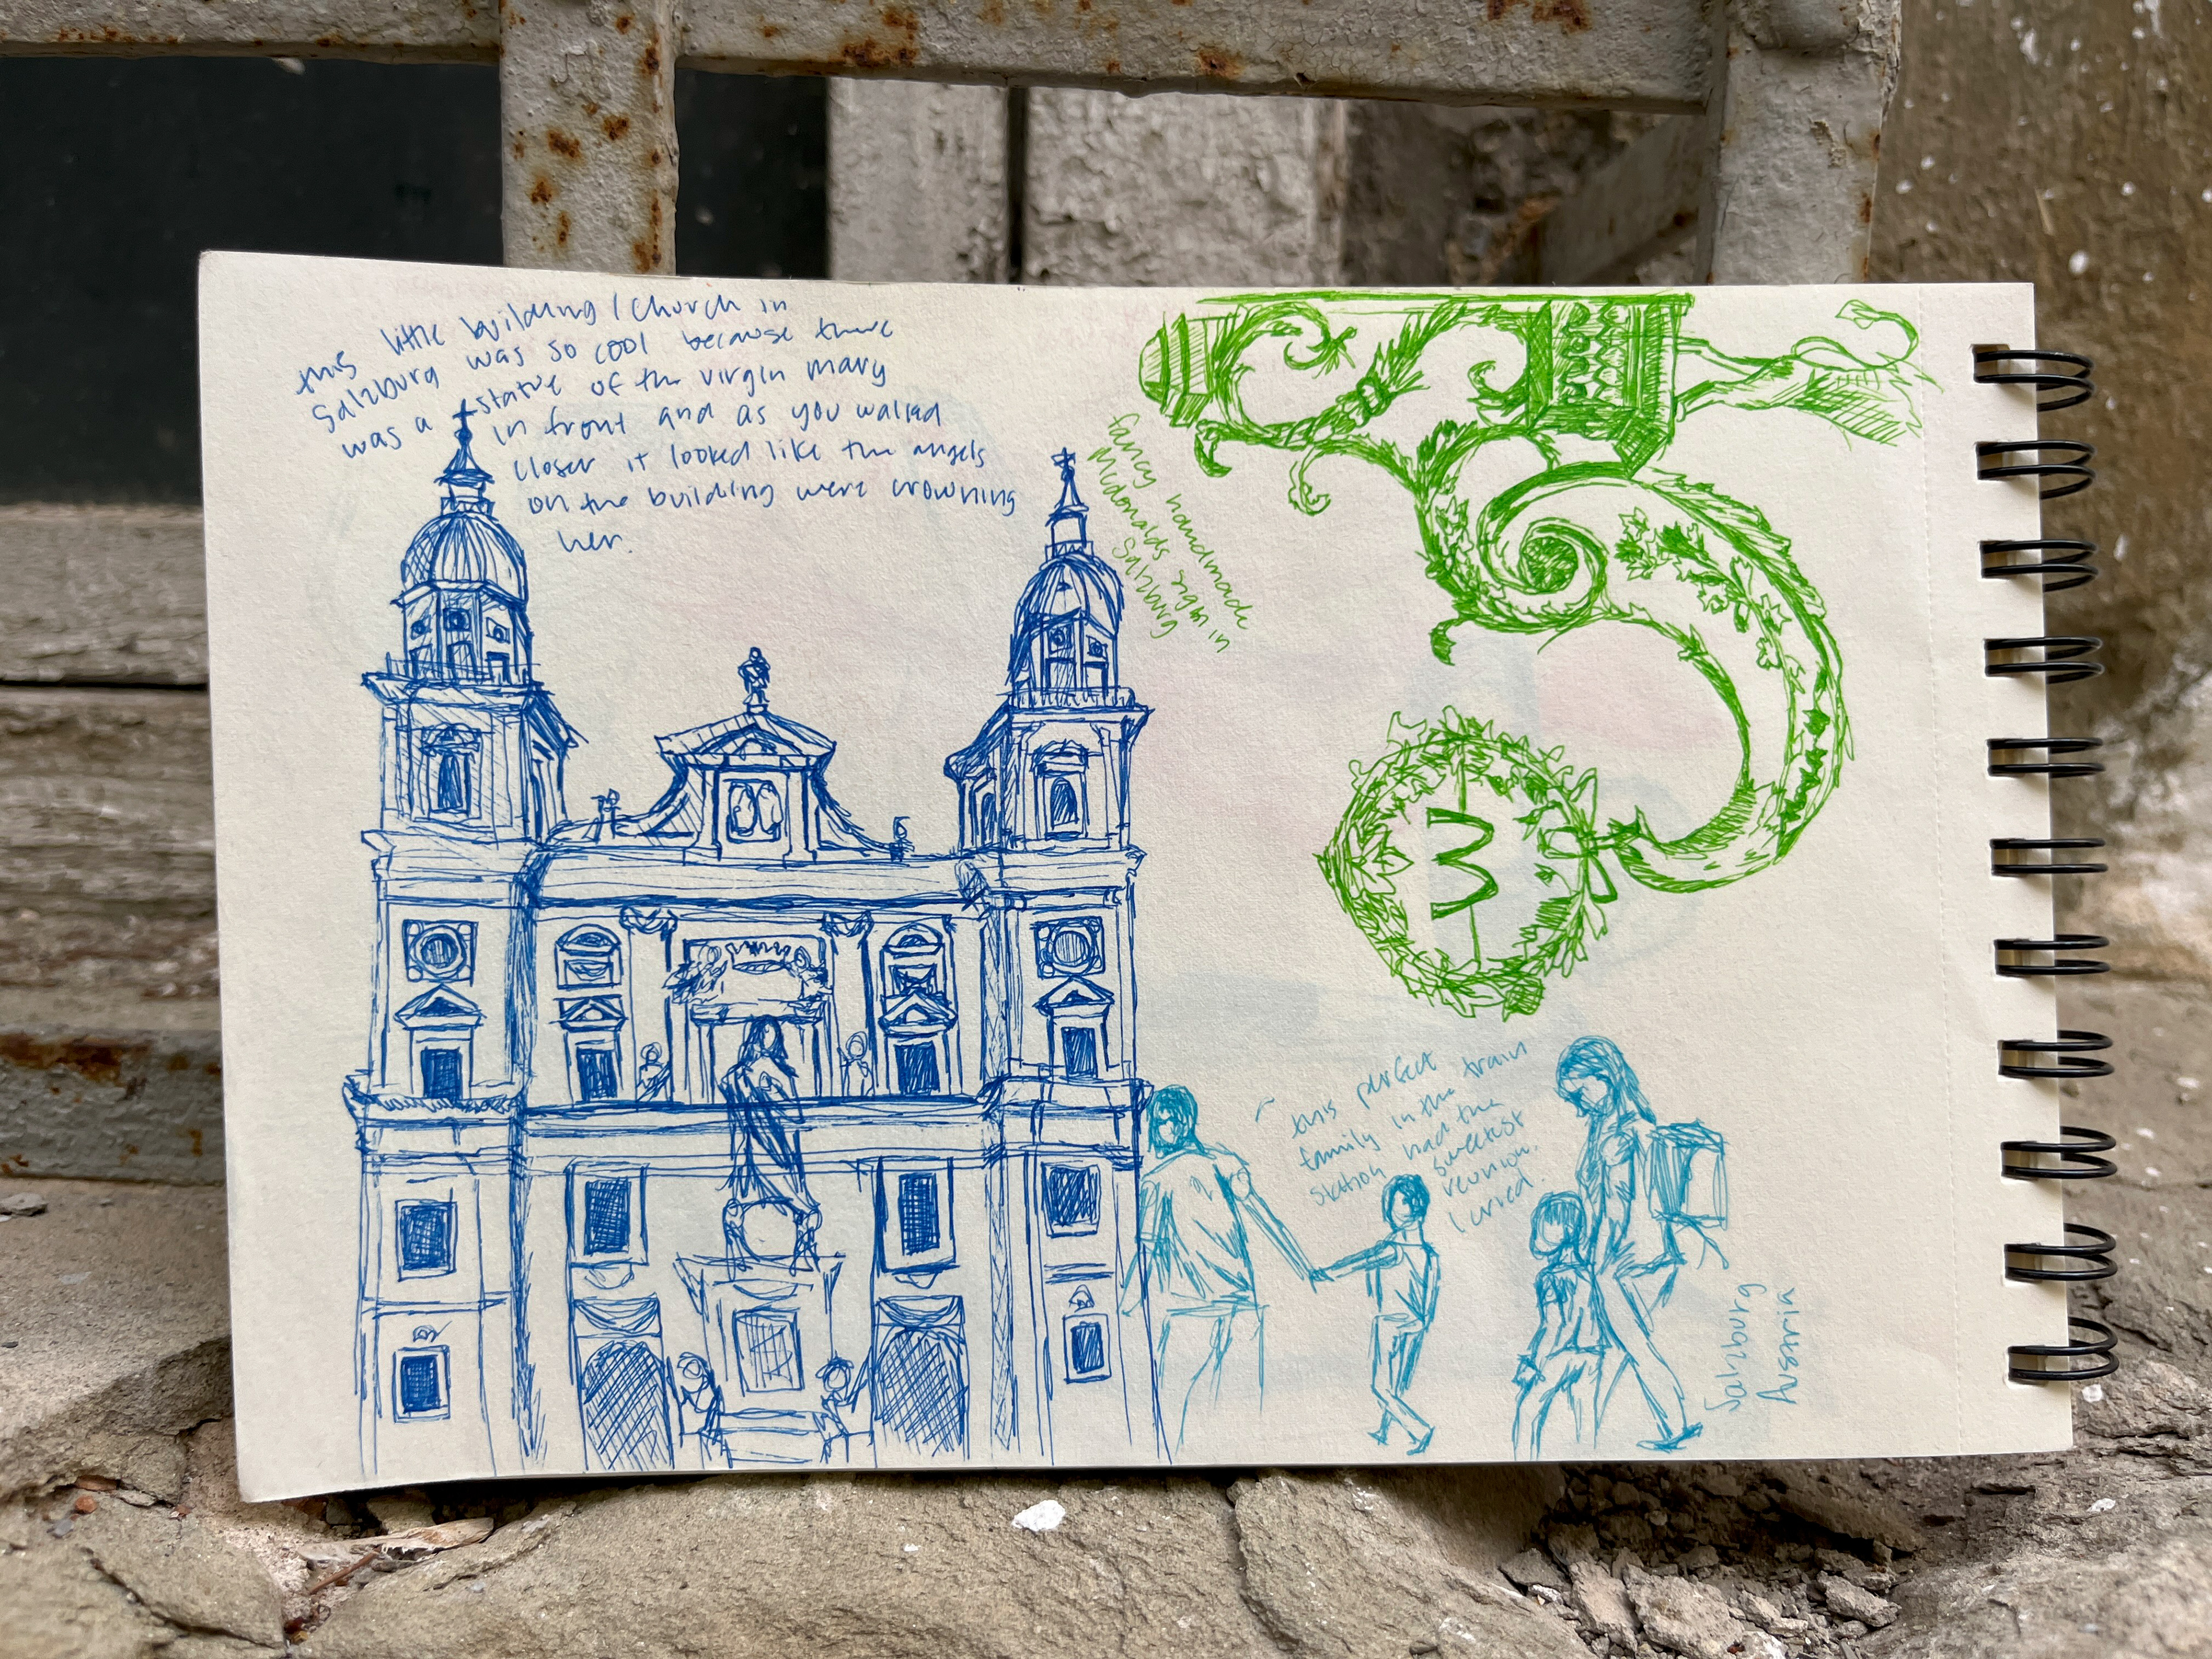 this little building / church in
Salzburg was so cool because there
was a statue of the virgin mary
in front and as you walked
closer it looked like the angels
on the building were crowning
her.
fancy handmade
Mcdonalds sign in
Salzburg
M
this perfect
family in the train
station had the
sweetest
reunion.
I cried.
Salzburg
Austria